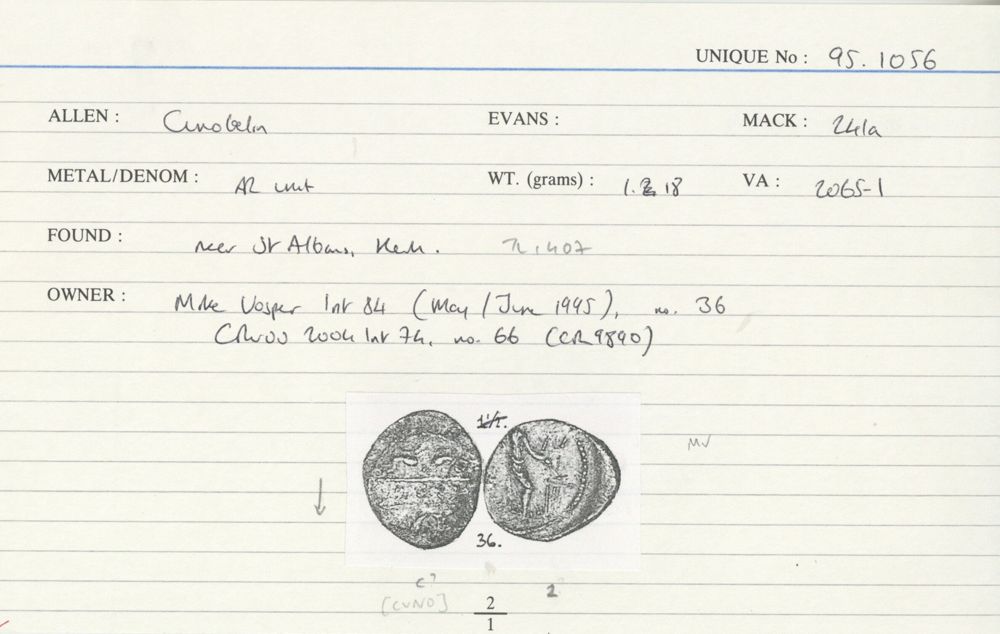 UNIQUE No : 95.1056
ALLEN : Cunobelin EVANS : MACK : 241a
METAL/DENOM : AR unit WT. (grams) : 1.18 VA : 2065-1
FOUND : near St Albans, Herts. 407
OWNER : Mike Vosper Int 84 (May/June 1995), no. 36
2004 Int 74, no. 66 (CR 9890)
MV
36.
c?
[CVNO] 2
2
1